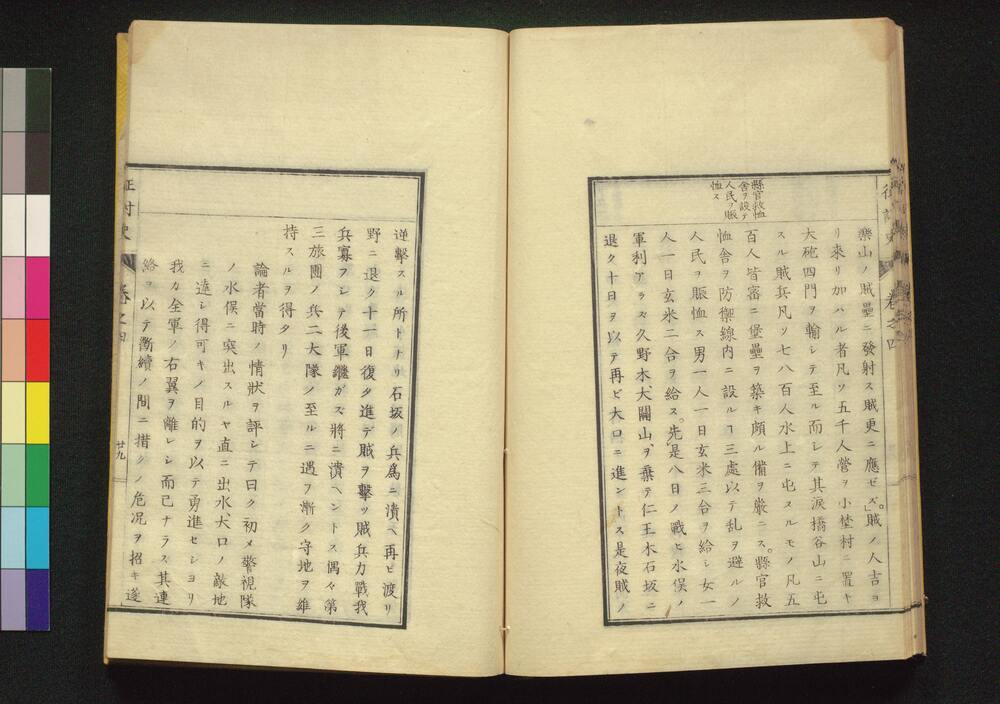 樂山ノ賊壘ニ發射ス賊更ニ應ゼズ」賊ノ人吉ヨ
リ來リ加ハル者凡ソ五千人營ヲ小埜村ニ置キ
大砲四門ヲ輸シテ至ル而シテ其淚橋谷山ニ屯
スル賊兵凡ソ七八百人水上ニ屯スルモノ凡五
百人皆密ニ堡壘ヲ築キ頗ル備ヲ嚴ニス。縣官救
恤舍ヲ防禦線内ニ設ルヿ三處以テ乱ヲ避ルノ
人民ヲ賑恤ス男一人一日玄米三合ヲ給シ女一
人一日玄米二合ヲ給ス。先是八日ノ戰ヒ水俣ノ
軍利アラス久野木、大關山、ヲ棄テ仁王木石坂ニ
退ク十日ヲ以テ再ビ大口ニ進ントス是夜賊ノ
縣官救恤
舍ヲ設テ
人民ヲ賑
恤ス
征討史
卷之四
逆擊スル所トナリ石坂ノ兵爲ニ潰ヘ再ビ渡リ
野ニ退ク十一日復タ進デ賊ヲ擊ツ賊兵力戰我
兵寡フシテ後軍繼ガズ將ニ潰ヘントス偶々第
三旅團ノ兵二大隊ノ至ルニ遇ヲ漸ク守地ヲ維
持スルヲ得タリ
論者當時ノ情狀ヲ評シテ曰ク初メ警視隊
ノ水俣ニ突出スルヤ直ニ出水、大口ノ敵地
ニ達シ得可キノ目的ヲ以テ勇進セシヨリ
我カ全軍ノ右翼ヲ離レシ而已ナラス其連
絡ヲ以テ斷續ノ間ニ措クノ危况ヲ招キ遂
征討史
卷之四
廿九